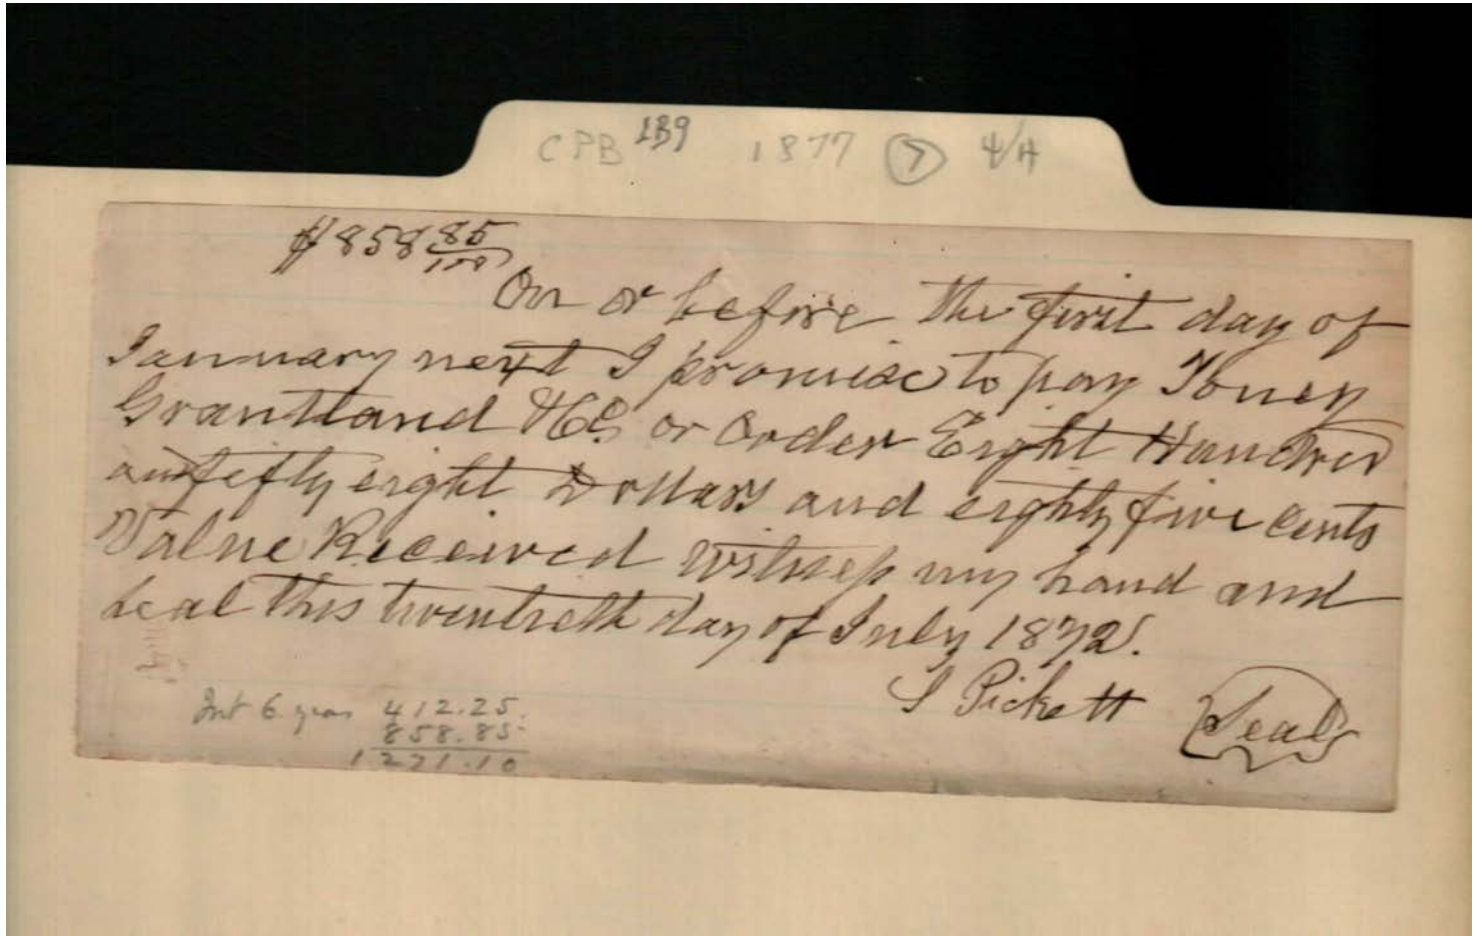 CPB 1B9 1877 7 4/A
$858 85/100
On or before the first day of
January next I promise to pay Toney
Grantland & Co or order Eight Hundred
and fifty eight Dollars and eighty five cents
Value Received witness my hand and
seal this twentieth day of July 1872.
S Pickett Seal
Int 6 years 412.25
858.85
1271.10